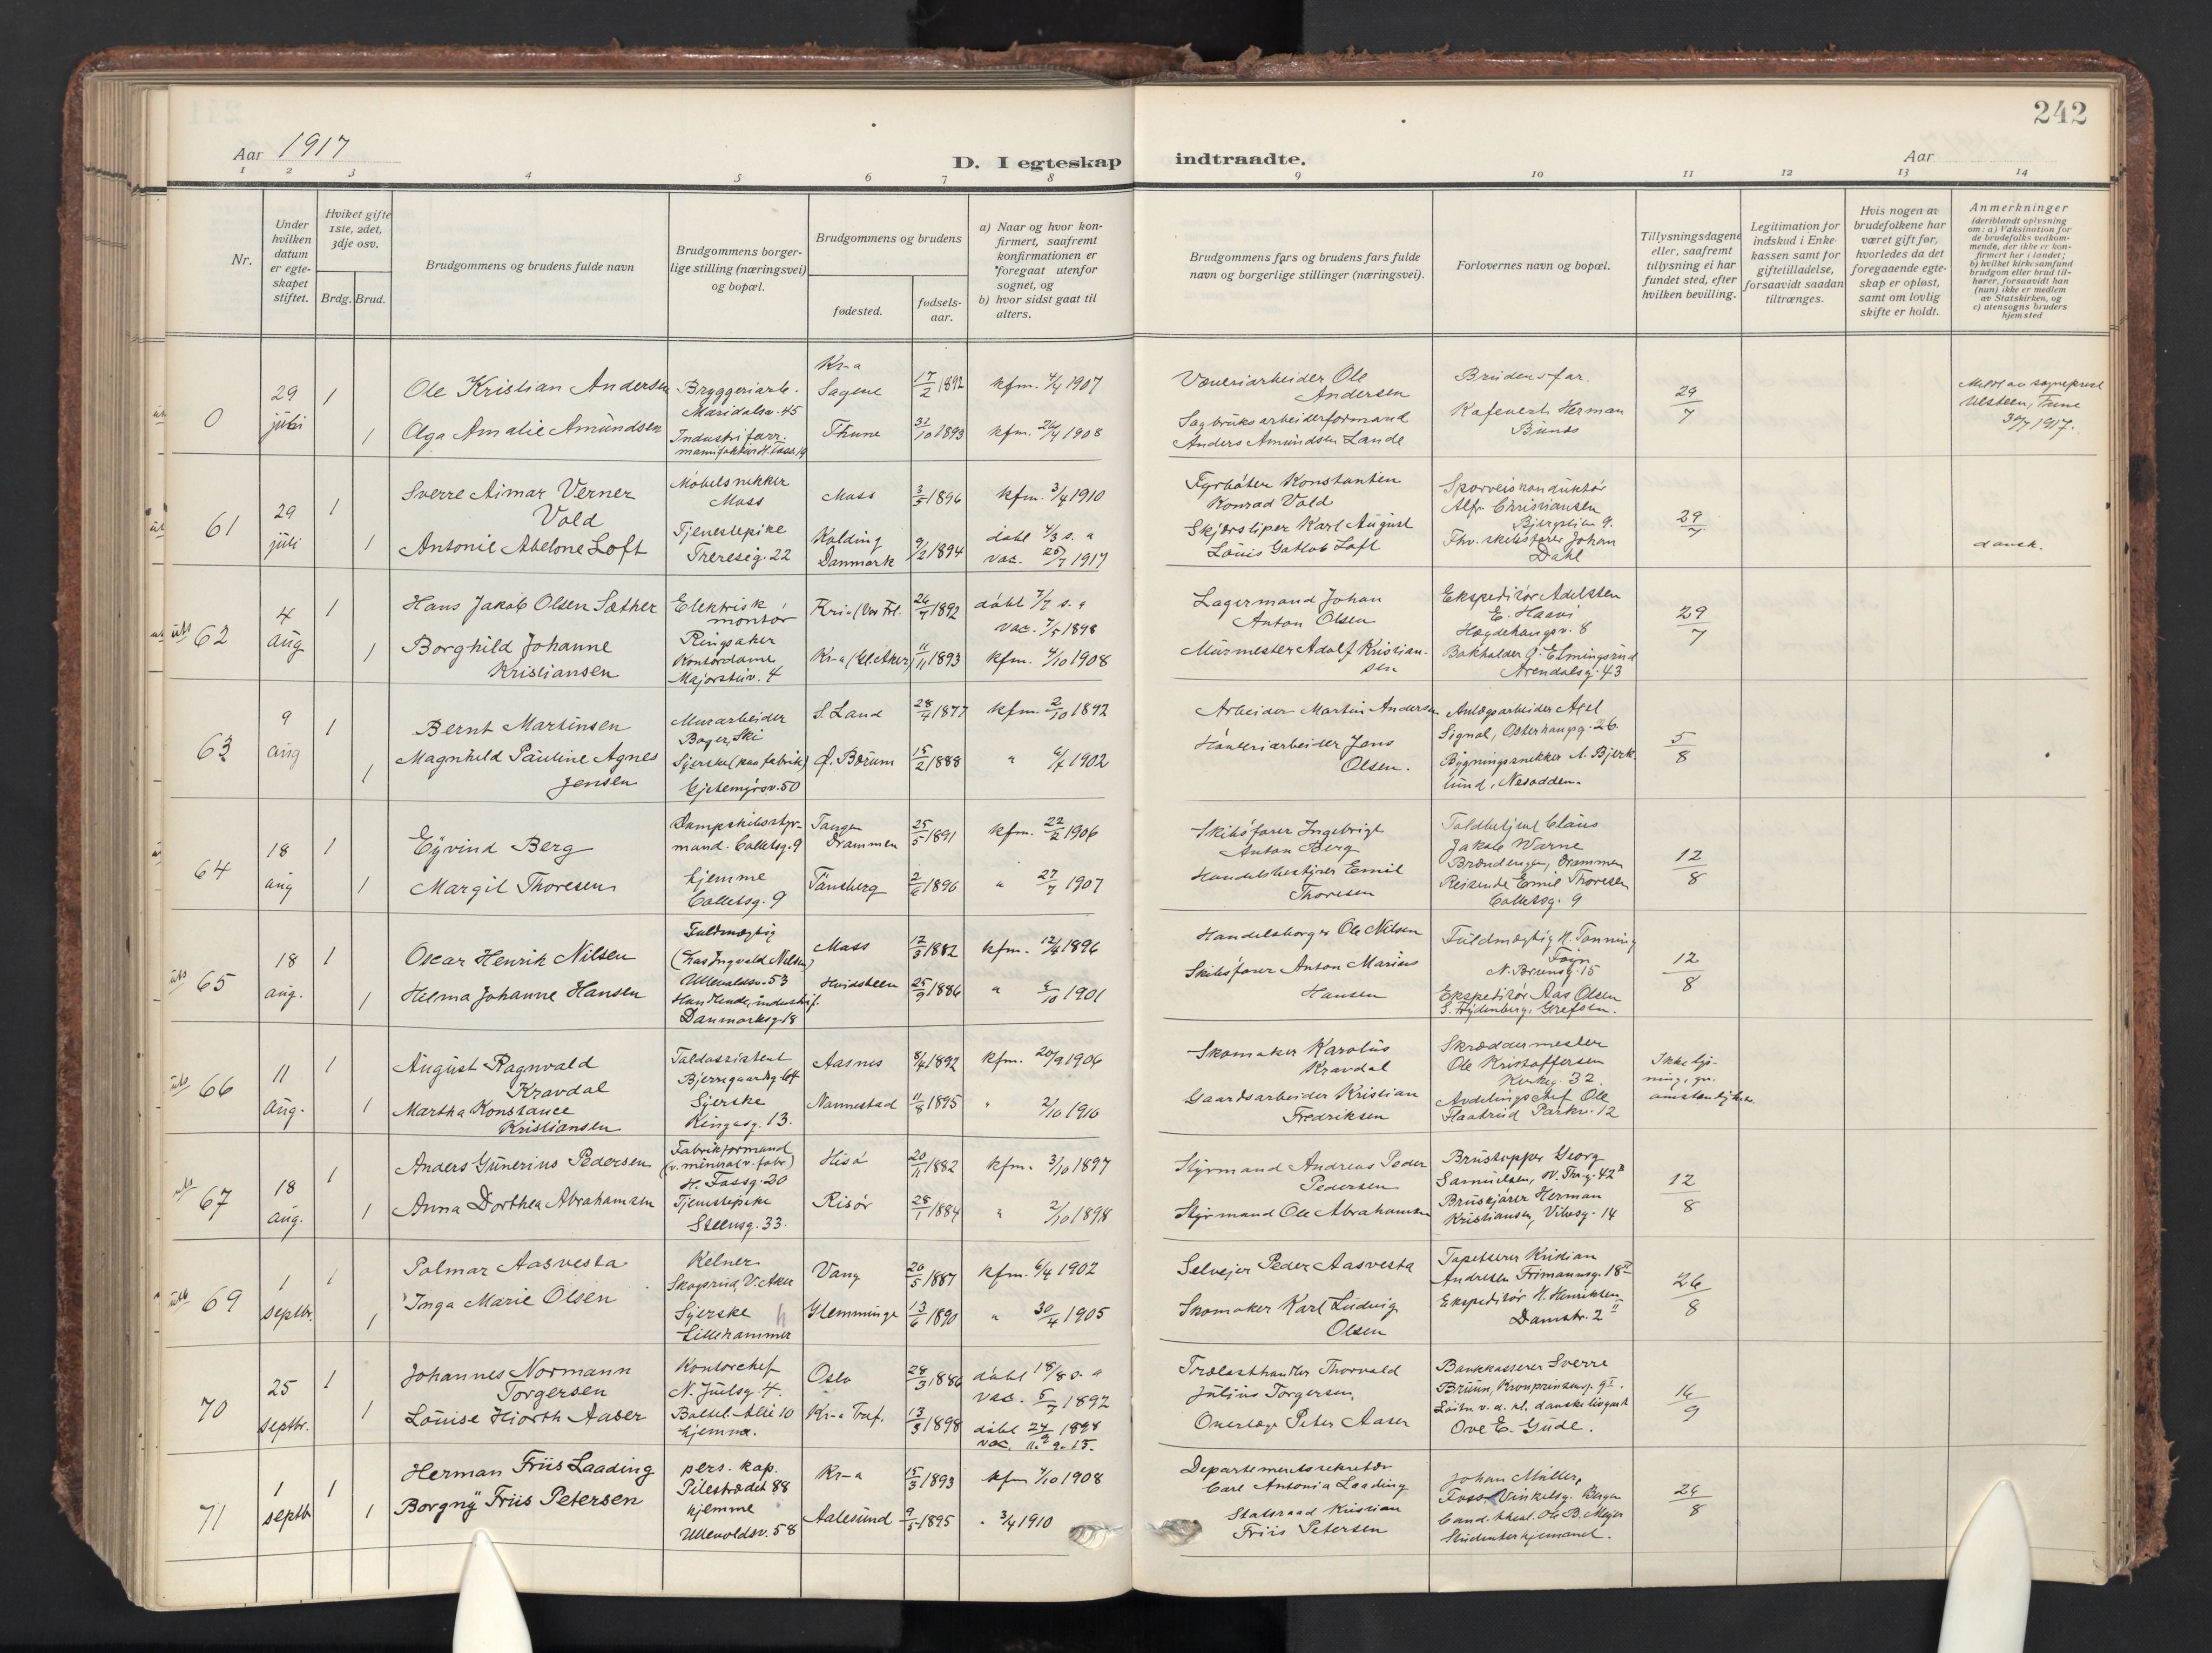 242
Aar 1917
D. I egteskap indtraadte.
Aar
1 2 3 4 5 6 7 8 9 10 11 12 13 14
Nr.
Under hvilken datum er egteskapet stiftet.
Hvilket gifte 1ste, 2det, 3dje osv.
Brdg. Brud.
Brudgommens og brudens fulde navn
Brudgommens borgerlige stilling (næringsvei) og bopæl.
Brudgommens og brudens
fødested.
fødselsaar.
a) Naar og hvor konfirmert, saafremt konfirmationen er foregaat utenfor sognet, og
b) hvor sidst gaat til alters.
Brudgommens fars og brudens fars fulde navn og borgerlige stillinger (næringsvei).
Forlovernes navn og bopæl.
Tillysningsdagene eller, saafremt tillysning ei har fundet sted, efter hvilken bevilling.
Legitimation for indskud i Enkekassen samt for giftetilladelse, forsaavidt saadan tiltrænges.
Hvis nogen av brudefolkene har været gift før, hvorledes da det foregaaende egteskap er opløst, samt om lovlig skifte er holdt.
Anmerkninger
(deriblandt oplysning om: a) Vaksination for de brudefolks vedkommende, der ikke er konfirmert her i landet; b) hvilket kirkesamfund brudgom eller brud tilhører, forsaavidt han (hun) ikke er medlem av Statskirken, og c) utensogns bruders hjemsted
0
29 juli
1
Ole Kristian Andersen
Bryggeriarb.
Maridalsv. 45
Kr-a
Sagene
17/2 1892
kfm. 4/4 1907
Væveriarbeider Ole
Andersen
Brudens far.
29/7
Meldt av sogneprest
Ulsteen, Tune
30/7 1917.
1
Olga Amalie Amundsen
Thune
31/10 1893
kfm. 26/4 1908
Sagbruksarbeiderformand
Anders Amundsen Lande
Kafevert Herman
61
29 juli
1
Sverre Aimar Verner
Vold
Møbelsnekker
Moss
Moss
3/5 1896
kfm. 3/4 1910
Fyrbøter Konstantin
Konrad Vold
Sporveiskonduktør
Alfr. Christiansen
29/7
1
Antonie Abelone Loft
Tjenestepike
Theresesg. 22
Kolding
Danmark
9/2 1894
døbt 4/3 s. a
vac. 1917
Skjærsliper Karl August
Louis Gotlob Loft
Fhv. skibsfører Johan
Dahl
dansk.
62
4 aug
1
Hans Jakob Olsen Sæther
Elektrisk
montør
Ringsaker
Kr-a (Vor Frl.
1892
døbt 7/7 s. a
vac. 7/5 1898
Lagermand Johan
Anton Olsen
Ekspeditør Adelsten
Hægdehaugsv. 8
29/7
1
Borghild Johanne
Kristiansen
Kontordame
Majorstuv. 4
Kr-a (Gl. Aker)
11/11 1893
kfm. 4/10 1908
Murmester Adolf Kristiansen
Bokholder
Arendalsg. 43
63
9 aug
1
Bernt Martinsen
Murarbeider
Ski
S. Land
28/4 1877
kfm. 2/10 1892
Arbeider Martin Andersen
Anlægsarbeider Axel
Signal, Osterhausg. 26.
5/8
1
Magnhild Pauline Agnes
Jensen
Syerske
Gjetemyrsv. 50
Ø. Bærum
15/2 1888
" 1902
Høvleriarbeider Jens
Olsen.
Bygningssnekker A. Bjerklund, Nesodden.
64
18 aug
1
Eyvind Berg
Dampskibsstyrmand. Colletsg. 9
Tangen
Drammen
25/5 1891
kfm. 22/2 1906
Skibsfører Ingebrigt
Anton Berg
Toldbetjent Claus
Jakob Warne
Brandengen, Drammen
12/8
1
Margit Thoresen
hjemme
Colletsg. 9
Tønsberg
2/6 1896
" 27/7 1907
Handelsbestyrer Emil
Thoresen
Reisende Emil Thoresen
Colletsg. 9
65
18 aug.
1
Oscar Henrik Nilsen
Fuldmægtig
(hos Ingvald Nielsen)
Ullevaldsv. 53
Moss
12/3 1882
kfm. 12/4 1896
Handelsborger Ole Nilsen
Fuldmægtig H. Tonning
N. Brunsg. 15
12/8
1
Helma Johanne Hansen
Danmarksg. 18
Hvidsteen
25/9 1886
" 6/10 1901
Skibsfører Anton Marius
Hansen
Ekspeditør Aas Olsen
Grefsen.
66
11 aug.
1
August Ragnvald
Kravdal
Toldassistent
Bjerregaardsg. 64
Aasnes
8/4 1892
kfm. 20/9 1906
Skomaker Karolus
Kravdal
Skræddermester
Ole Kristoffersen
Kirkeg. 32.
Ikke lysning, gr.
omstændigheter
1
Martha Konstance
Kristiansen
Syerske
Ringsg. 13.
Nannestad
11/8 1895
" 2/10 1910
Gaardsarbeider Kristian
Fredriksen
Avdelingschef Ole
Flaatrud Parkv. 12
67
18 aug.
1
Anders Gunerius Pedersen
Fabrikformand
(v. mineralv. fabr.)
H. Fossg. 20
Hisø
20/11 1882
kfm. 3/10 1897
Styrmand Andreas Peder
Pedersen
Brustapper Georg
Samuelsen, N. Thrg. 42 II
12/8
1
Anna Dorthea Abrahamsen
Tjenestepike
Steensg. 33.
Risør
28/1 1884
" 2/10 1898
Styrmand Ole Abrahamsen
Bruskjører Herman
Kristiansen, Vibesg. 14
69
1 septbr.
1
Palmar Aasvesta
Kelner
Skogsrud, V. Aker
Vang
20/5 1887
kfm. 6/4 1902
Selveier Peder Aasvesta
Tapetserer Kristian
Andresen Frimannsg. 18 II
26/8
1
Inga Marie Olsen
Syerske
Lillehammer
Glemminge
13/6 1890
" 30/4 1905
Skomaker Karl Ludvig
Olsen
Ekspeditør H. Henriksen
Damstr. 2 II
70
25 septbr.
1
Johannes Normann
Torgersen
Kontorchef
N. Juelsg. 4.
Oslo
28/3 1886
døbt 18/8 s. a
vac. 5/7 1892
Trælasthandler Thorvald
Julius Torgersen,
Bankkasserer Sverre
Bruun, Kronprinsensg. 9 I.
16/9
1
Louise Hiorth Aaser
Balchl. Allé 10
hjemme.
Kr-a Tref.
13/3 1898
døbt 1898
vac.
Overlæge Peter Aaser
Løitn v. d. kl. danske livgard
Ove E. Gude.
71
1 septb
1
Herman Friis Laading
pers. kap.
Pilestrædet 88
Kr-a
15/3 1893
kfm 4/10 1908
Departementssekretær
Carl Antonio Laading
Johan Müller,
Vinkelsg. Bergen
26/8
1
Borgny Friis Petersen
hjemme
Ullevoldsv. 58
Aalesund
9/5 1895
" 3/4 1910
Statsraad Kristian
Friis Petersen
Cand. theol. Ole B. Meyer
Studenterhjemmet.